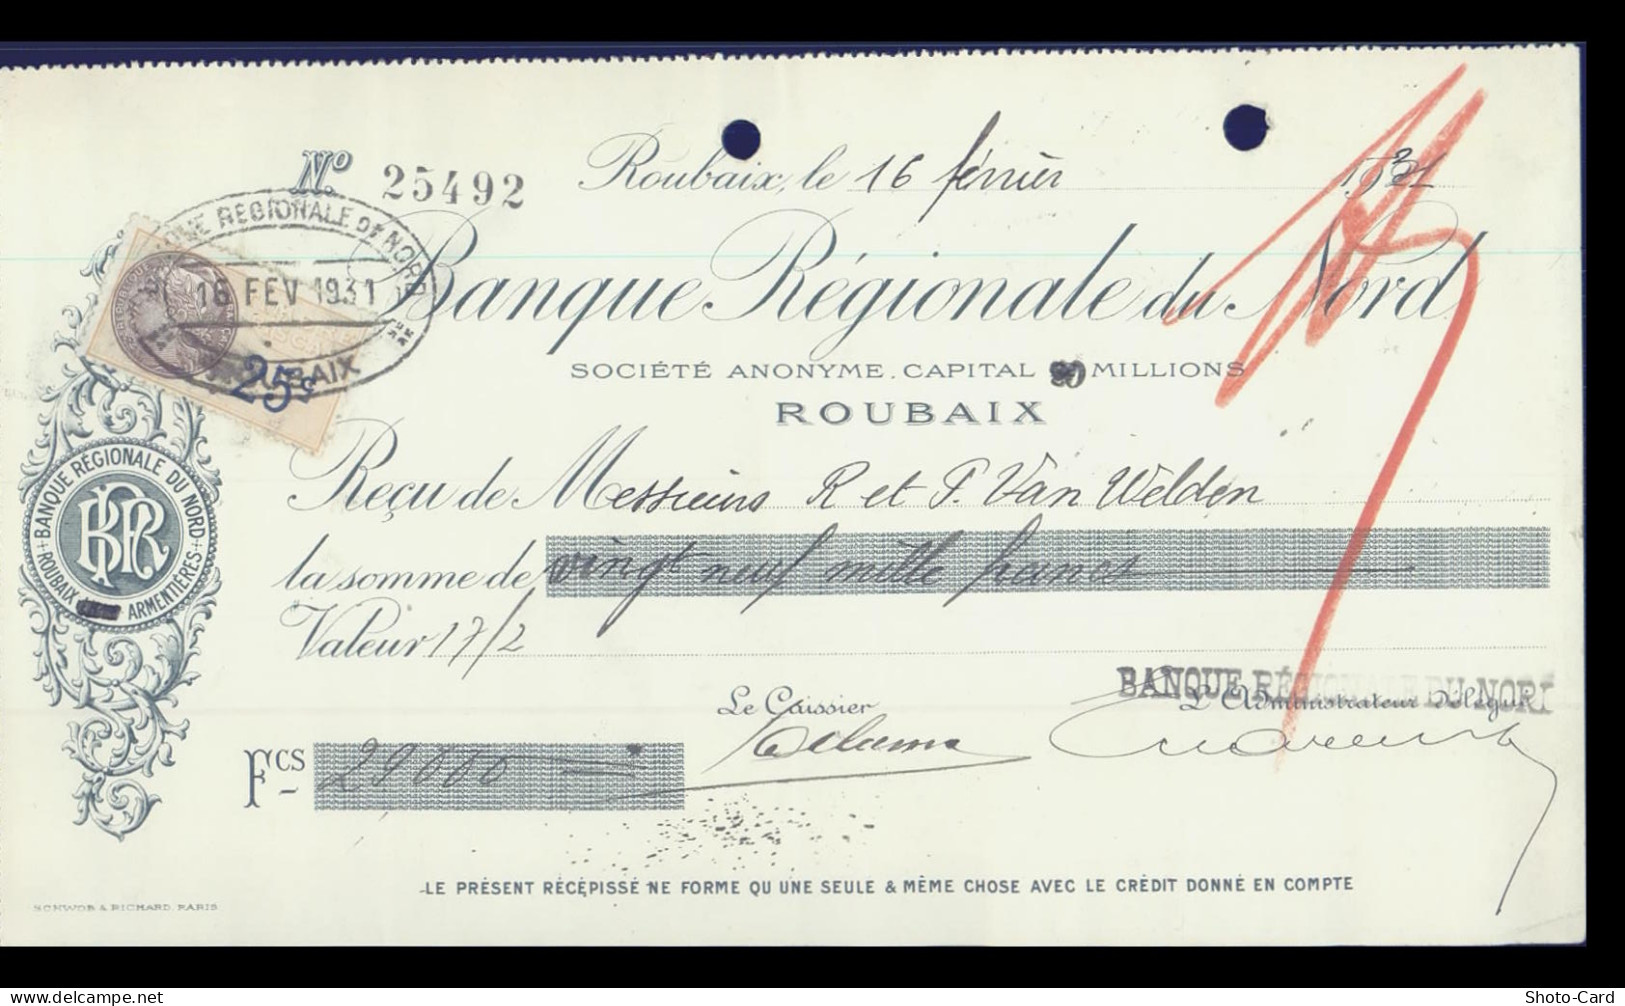 Nº 25492
Roubaix, le 16 février 1931
BANQUE RÉGIONALE DU NORD
16 FEV 1931
ROUBAIX
25c
Banque Régionale du Nord
SOCIÉTÉ ANONYME. CAPITAL MILLIONS
ROUBAIX
Reçu de Messieurs R et P. Van Welden
la somme de vingt neuf mille francs
Valeur 17/2
BANQUE RÉGIONALE DU NORD
ROUBAIX ARMENTIÈRES
BRN
BANQUE RÉGIONALE DU NORD
Le Caissier
L'Administrateur Délégué
Fcs 29000
LE PRÉSENT RÉCÉPISSÉ NE FORME QU UNE SEULE & MÊME CHOSE AVEC LE CRÉDIT DONNÉ EN COMPTE
SCHWOB & RICHARD. PARIS
delcampe.net
Shoto-Card